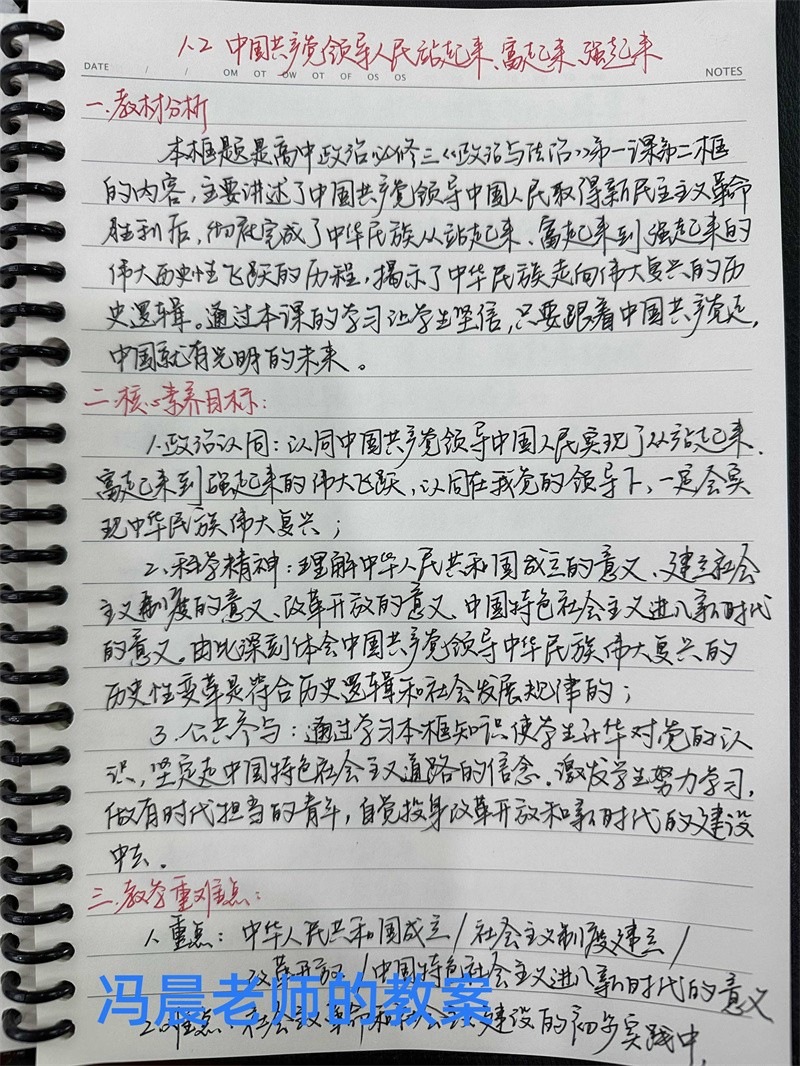 1.2 中国共产党领导人民站起来、富起来、强起来
DATE / / OM OT OW OT OF OS OS NOTES
一.教材分析
本框题是高中政治必修三《政治与法治》第一课第二框
的内容,主要讲述了中国共产党领导中国人民取得新民主主义革命
胜利后,彻底完成了中华民族从站起来、富起来到强起来的
伟大历史性飞跃的历程,揭示了中华民族走向伟大复兴的历
史逻辑。通过本课的学习让学生坚信,只要跟着中国共产党走,
中国就有光明的未来。
二.核心素养目标:
1.政治认同:认同中国共产党领导中国人民实现了从站起来、
富起来到强起来的伟大飞跃,认同在我党的领导下,一定会实
现中华民族伟大复兴;
2.科学精神:理解中华人民共和国成立的意义、建立社会
主义制度的意义、改革开放的意义、中国特色社会主义进入新时代
的意义。由此深刻体会中国共产党领导中华民族伟大复兴的
历史性变革是符合历史逻辑和社会发展规律的;
3.公共参与:通过学习本框知识使学生升华对党的认
识,坚定走中国特色社会主义道路的信念。激发学生努力学习,
做有时代担当的青年,自觉投身改革开放和新时代的建设
中去。
三.教学重难点:
1.重点:中华人民共和国成立/社会主义制度建立/
改革开放/中国特色社会主义进入新时代的意义
冯晨老师的教案
2.难点:社会主义革命和社会主义建设的初步实践中,